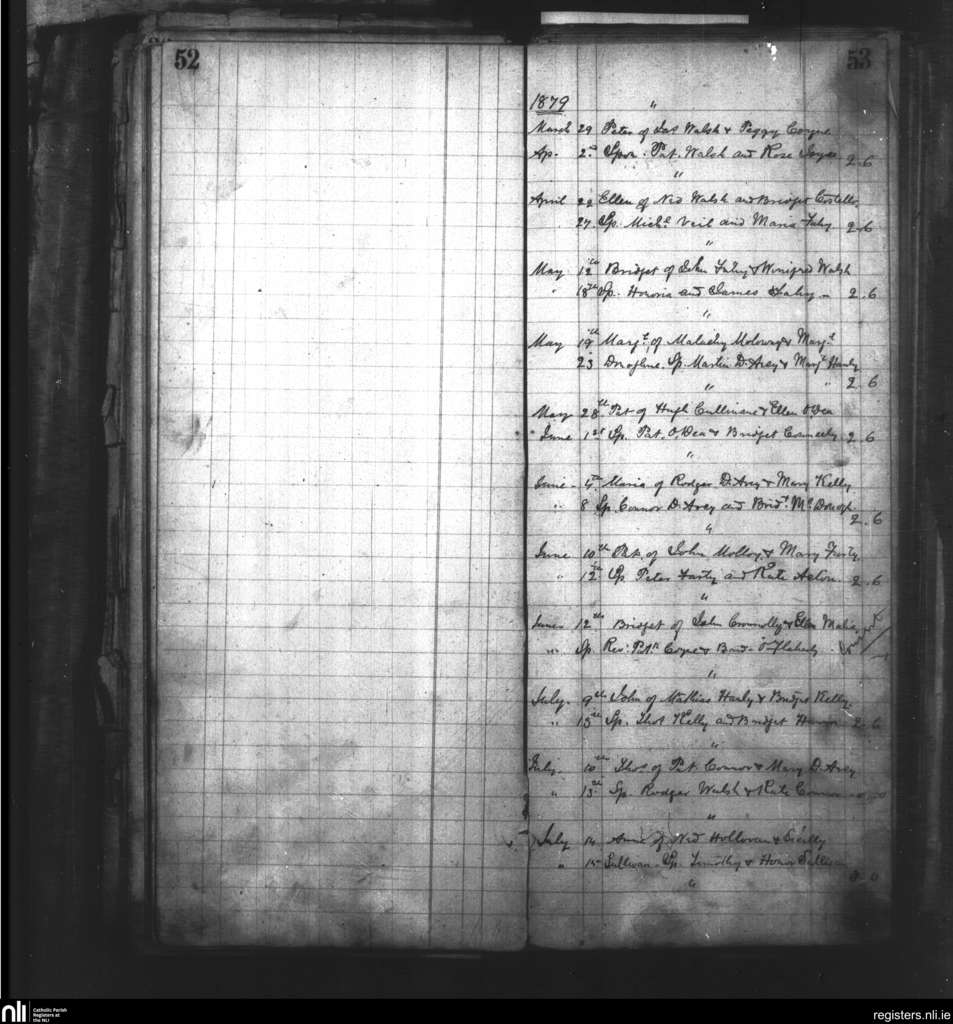 52
53
1879
"
March 29 Peter of Jas Walsh & Peggy Coyne
Ap. 2nd Spon. Pat. Walsh and Rose Joyce 2.6
"
April 22 Ellen of Ned Walsh and Bridget Costello
27 Sp. Michl Veil and Maria Fahy 2.6
"
May 12th Bridget of John Fahy & Winifred Walsh
" 18th Sp. Honoria and James Fahy 2.6
"
May 19th Margt. of Malachy Molowny & Margt.
23 Donoghue. Sp. Martin D'Arcy & Margt Hanly
" " 2.6
May 28th Pat of Hugh Cullinane & Ellen O'Dea
" June 1st Sp. Pat. O'Dea & Bridget Conneely 2.6
"
June 4th Maria of Rodger D'Arcy & Mary Kelly
" 8 Sp. Connor D'Arcy and Bridt. McDonogh
2.6
"
June 10th Pat. of John Molloy & Mary Farty
" 12th Sp. Peter Farty and Kate Acton 2.6
"
June 12th Bridget of John Connolly & Ellen
" Sp. Rev. Patk Coyne & O'Flaherty
"
July 9th John of Mathias Hanly & Bridget Kelly
" 13th Sp. Thos Kelly and Bridget 2.6
"
July 10th Thos of Pat Connor & Mary D'Arcy
" 13th Sp. Rodger Walsh & Kate
"
July 14 Anne of Ned Holloran & Cicilly
" 15 Sullivan Sp. Timothy & Honor Sullivan
"
nli
Catholic Parish
Registers at
the NLI
registers.nli.ie